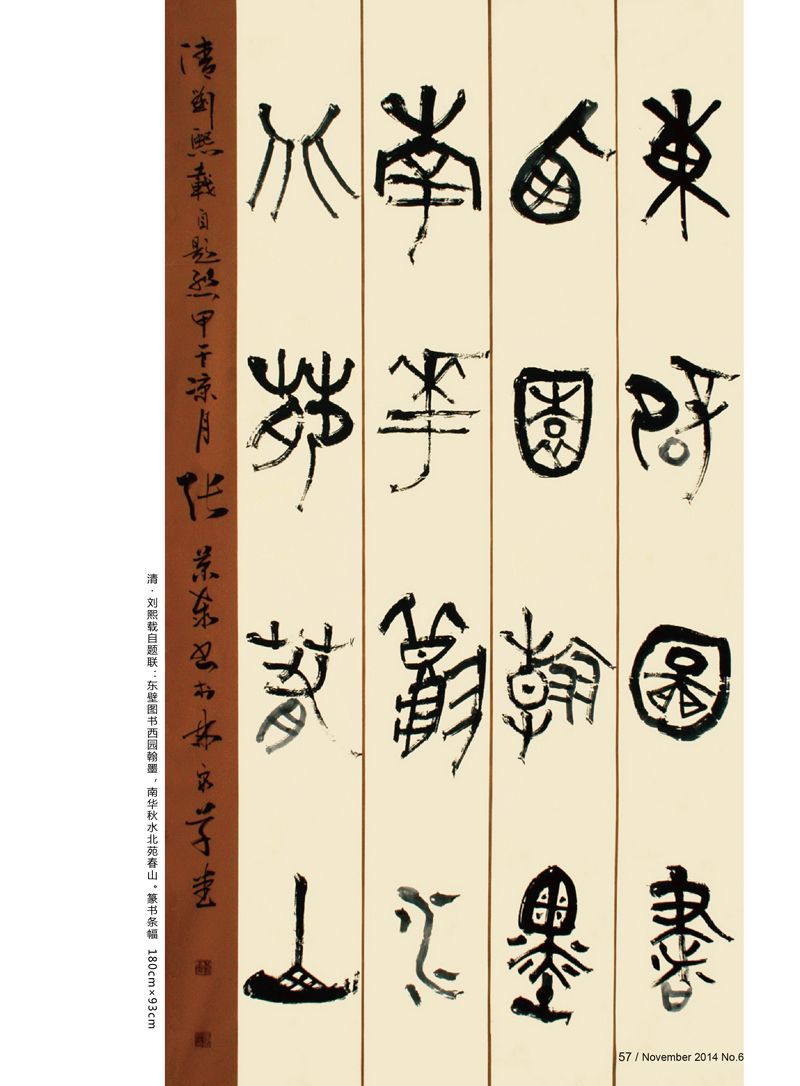 東壁圖書
西園翰墨
南華秋水
北苑春山
清劉熙載自題聯甲午涼月
張
清·刘熙载自题联：东壁图书西园翰墨，南华秋水北苑春山。篆书条幅 180cm×93cm
57 / November 2014 No.6